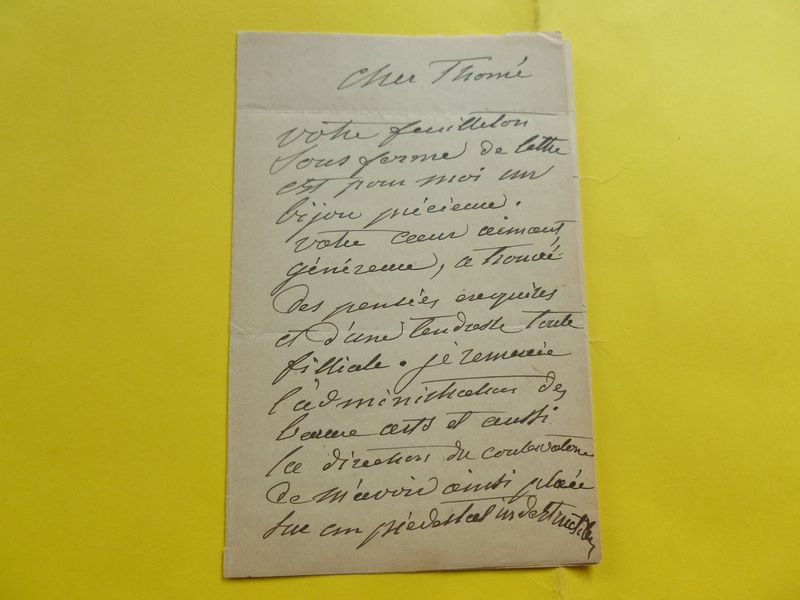 Cher Thomé
votre feuilleton
sous forme de lettre
est pour moi un
bijou précieux.
votre cœur aimant,
généreux, a trouvé
des pensées exquises
et d'une tendresse toute
filliale. je remercie
l'administration des
beaux arts et aussi
la direction du conservatoire
de m'avoir ainsi placée
sur un piédestal indestructible